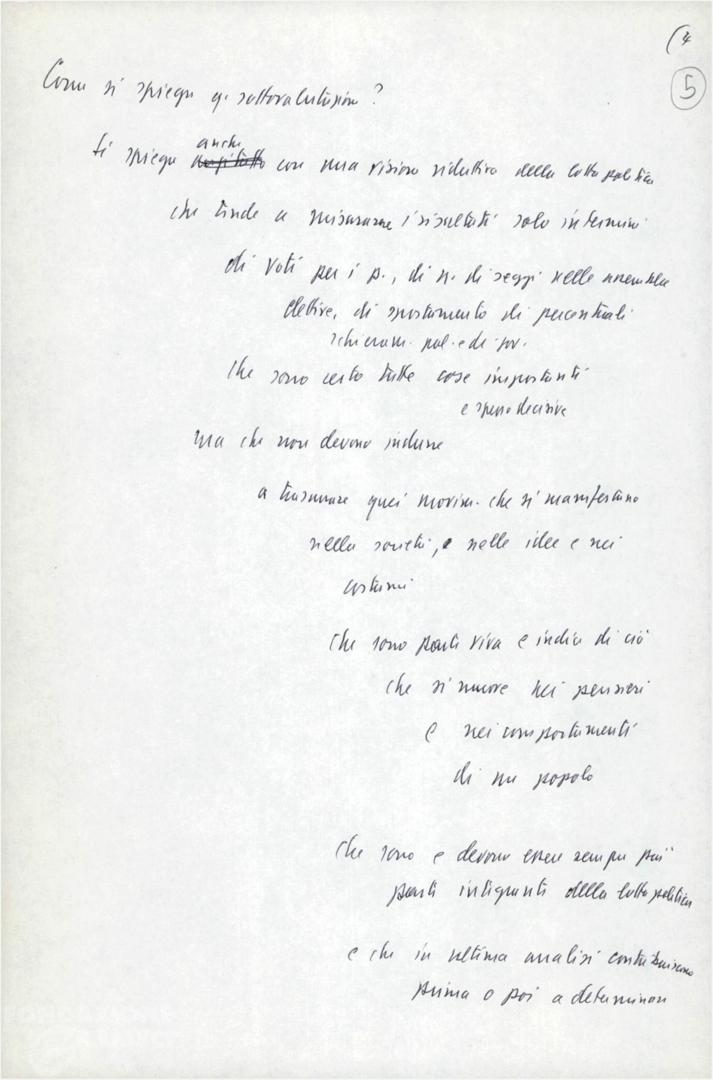 (4
5
Come si spiega q. sottovalutazione?
Si spiega anche con una visione riduttiva della lotta politica
che tende a misurare i risultati solo in termini
di voti per i p., di n. di seggi nelle assemblee
elettive, di spostamento di percentuali
schieram. pol. e di gov.
che sono certo tutte cose importanti
e spesso decisive
ma che non devono indurre
a trascurare quei movim. che si manifestano
nella società, e nelle idee e nei
costumi
che sono parte viva e indice di ciò
che si muove nei pensieri
e nei comportamenti
di un popolo
che sono e devono essere sempre più
parti integranti della lotta politica
e che in ultima analisi contribuiscono
prima o poi a determinare